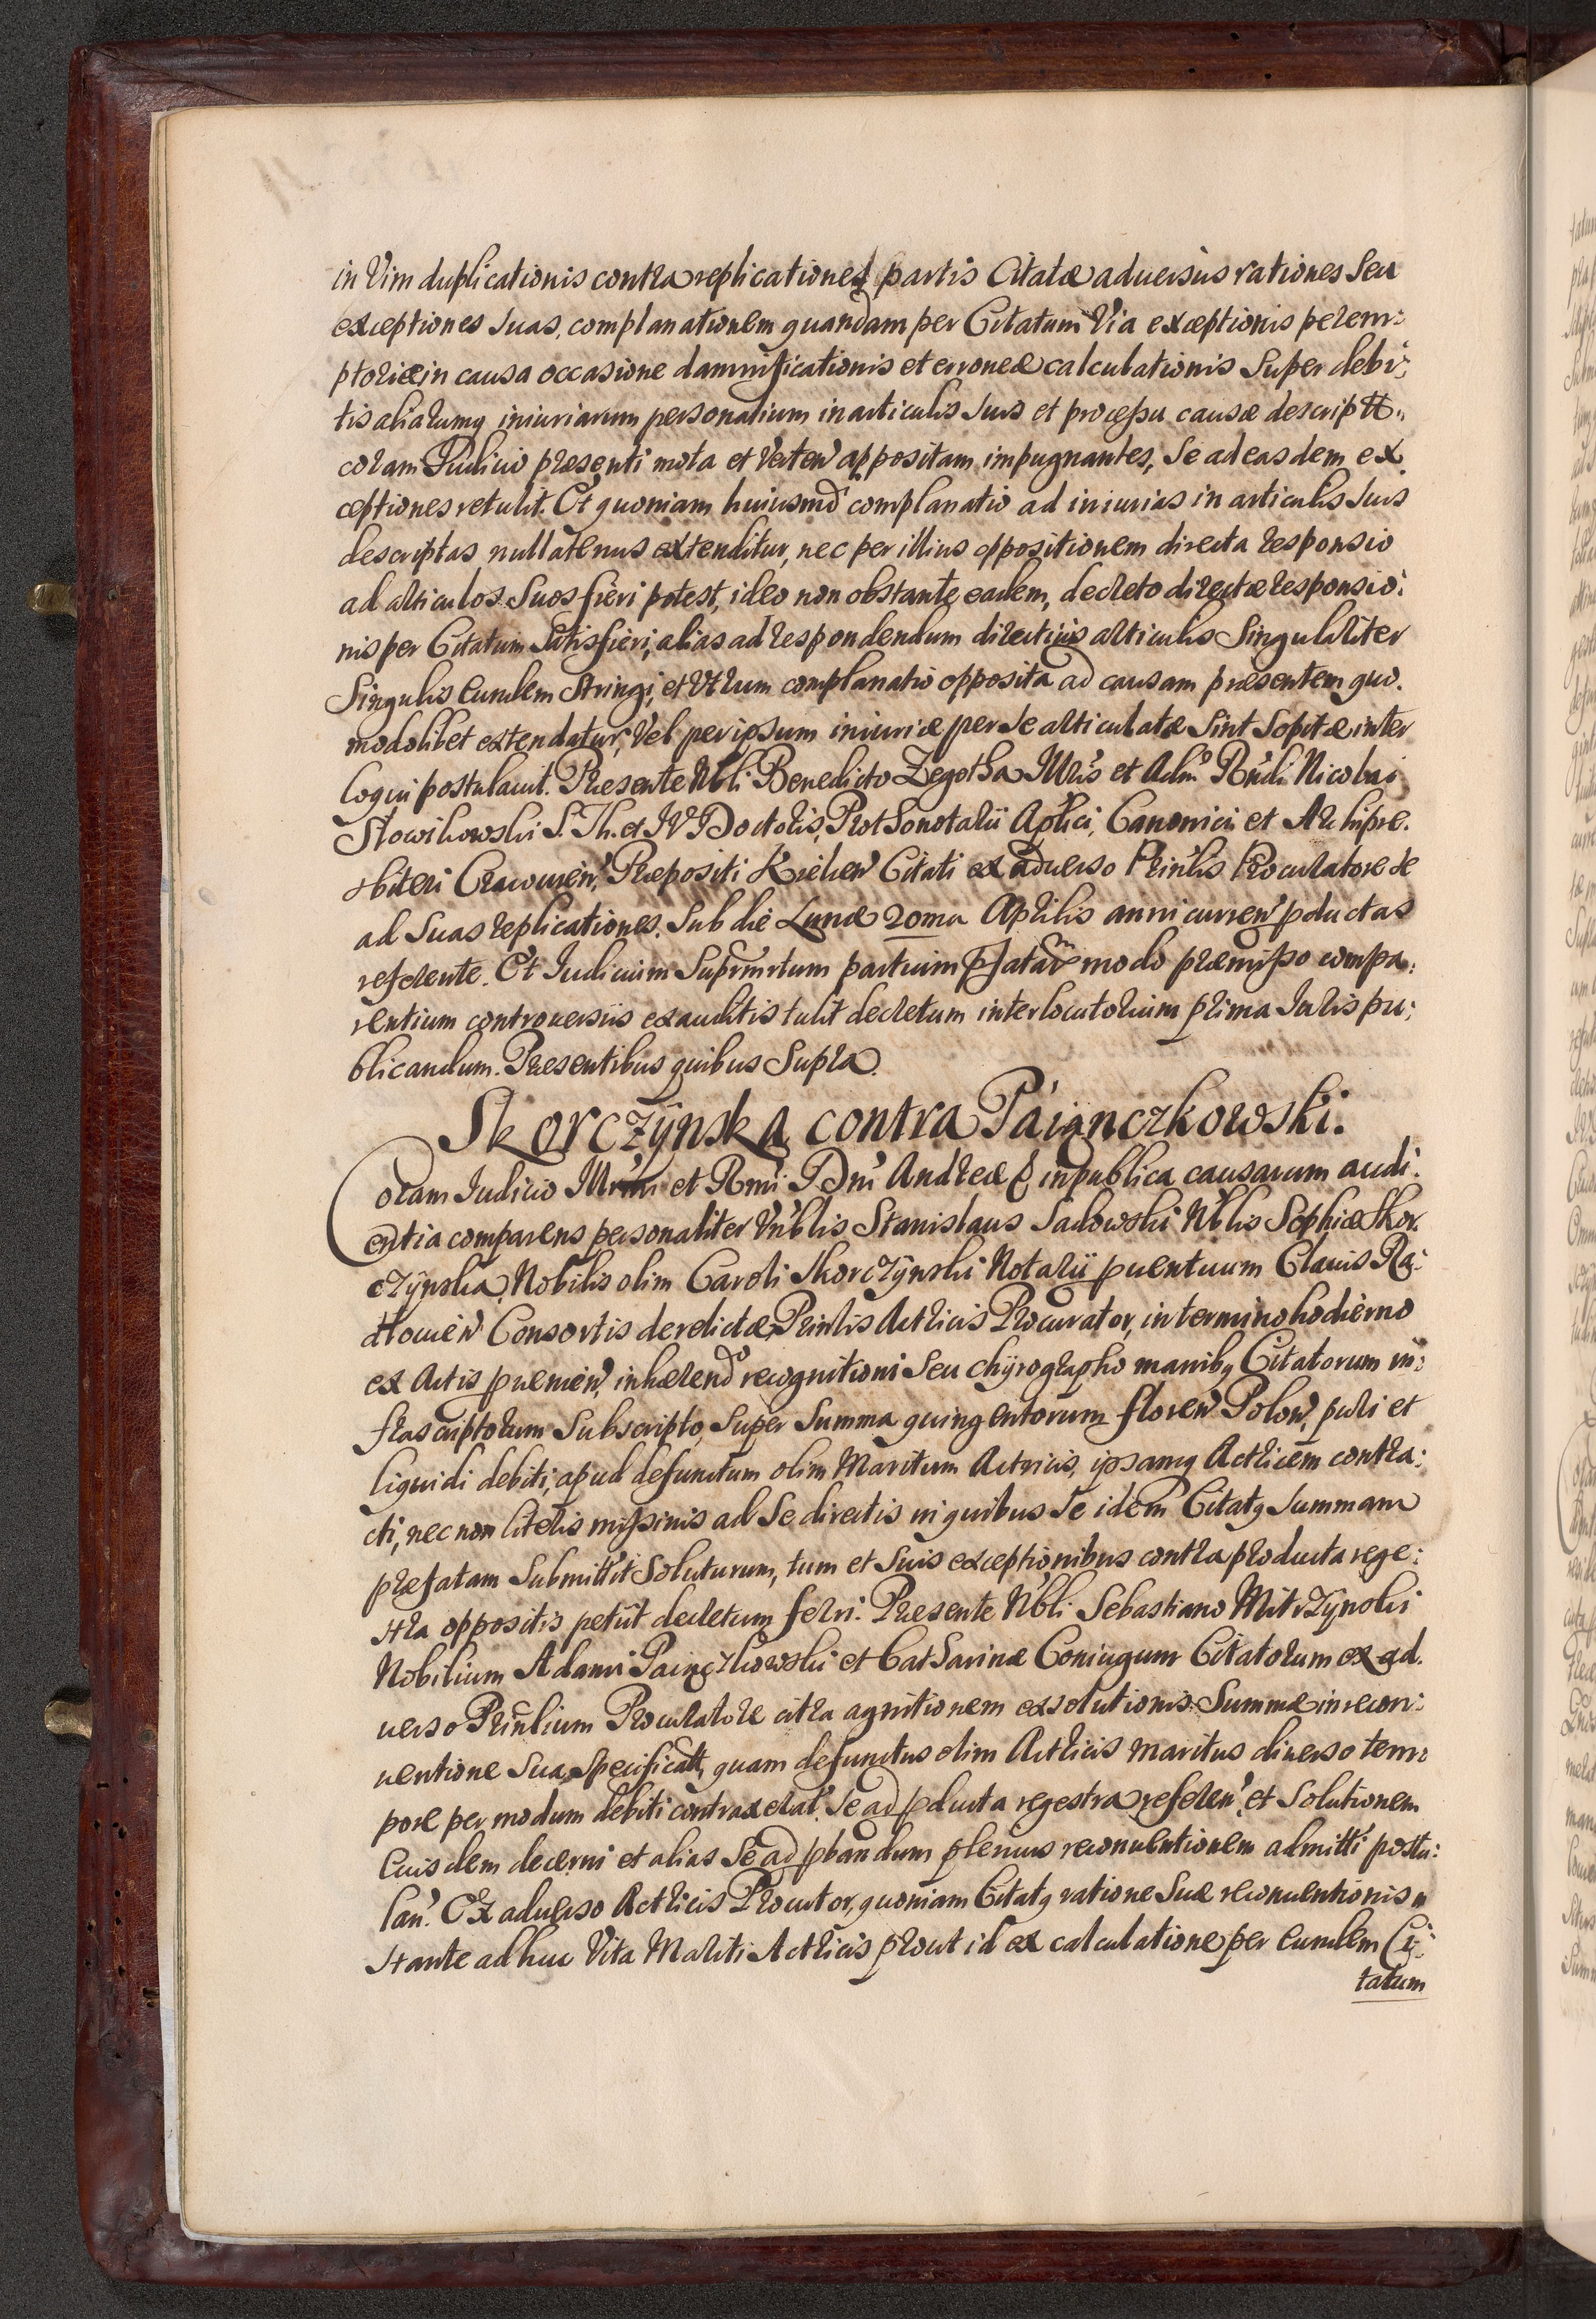 in Vim duplicationis contra replicationes partis Citatæ aduersus rationes seu
exceptiones suas, complanationem quandam per Citatum Via exceptionis perem:
ptoriæ in causa occasione damnificationis et erroneæ calculationis super debi:
tis aliarumq iniuriarum personalium in articulis suis et processu causæ descriptt:
coram Iudicio præsenti mota et Verten appositam impugnantes, se ad easdem ex
ceptiones retulit. Et quoniam huiusmd complanatio ad iniurias in articulis suis
descriptas nullatenus extenditur, nec per illius oppositionem directa responsio
ad articulos suos fieri potest, ideo non obstante eadem, decreto directæ responsio:
nis per Citatum satisfieri, alias ad respondendum directius articulis singulariter
singulis eundem stringi, et Vtrum complanatio opposita ad causam præsentem quo.
modolibet extendatur, Vel per ipsum iniuriæ per se articulatæ sint sopitæ inter
loqui postulauit. Præsente Nbli Benedicto Zegotha Illris et Adm Rndi Nicolai
Słowikowski S. Th. et IV Doctoris, Prothonotarii Aplici, Canonici et Archipre.
sbiteri Cracouien, Præpositi Kielcen Citati ex aduerso Prinlis Procuratore se
ad suas replicationes sub die Lunæ 20ma Aprilis anni curren pductas
referente. Et Iudicium suprmrtum partium pfatarm modo præmisso compa:
rentium controuersiis exauditis tulit decretum interlocutorium prima Iuris pu:
blicandum. Præsentibus quibus supra.
Skorczÿnska contra Paiączkowski.
Coram Iudicio Illrmi et Rmi Dni Andreæ & in publica causarum audi:
entia comparens personaliter Vnblis Stanislaus Sadowski Nblis Sophiæ Skor
czÿnska, Nobilis olim Caroli Skorczÿnski Notarii puentuum Clauis Ra:
dłouien Consortis derelictæ Prinlis Actricis Procurator, in termino hodierno
ex Actis puenien, inhærendo recognitioni seu chÿrographo manibq Citatorum in:
frascriptorum subscripto, super summa quingentorum floren Polon, puri et
liquidi debiti, apud defunctum olim Maritum Actricis, ipsamq Actricem contra:
cti, nec non literis missiuis ad se directis in quibus se idem Citatq summam
præfatam submittit soluturum, tum et suis exceptionibus contra producta rege:
stra oppositis petiit decretum ferri. Præsente Nbli Sebastiano Mitrzÿnski
Nobilium Adami Paiączkowski et Catharinæ Coniugum Citatorum ex ad.
uerso Prinlium Procuratore citra agnitionem exsolutionis summæ in recon:
uentione sua specificatt, quam defunctus olim Actricis maritus diuerso tem:
pore per modum debiti contraxerat, se ad pducta regestra referen et solutionem
eiusdem decerni et alias se ad pbandum plenius reconuentionem admitti postu:
lan. Ex aduerso Actricis Procutor, quoniam Citatq ratione suæ reconuentionis
stante adhuc Vita Mariti Actricis prout id ex calculatione per eundem Ci:
tatum